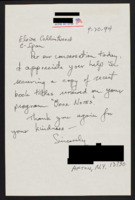 9-20-94
C-Span
Per our conversation today,
I appreciate your help in
securing a copy of recent
book titles reviewed on your
program "Book Notes"
Thank you again for
your kindness.
Sincerely